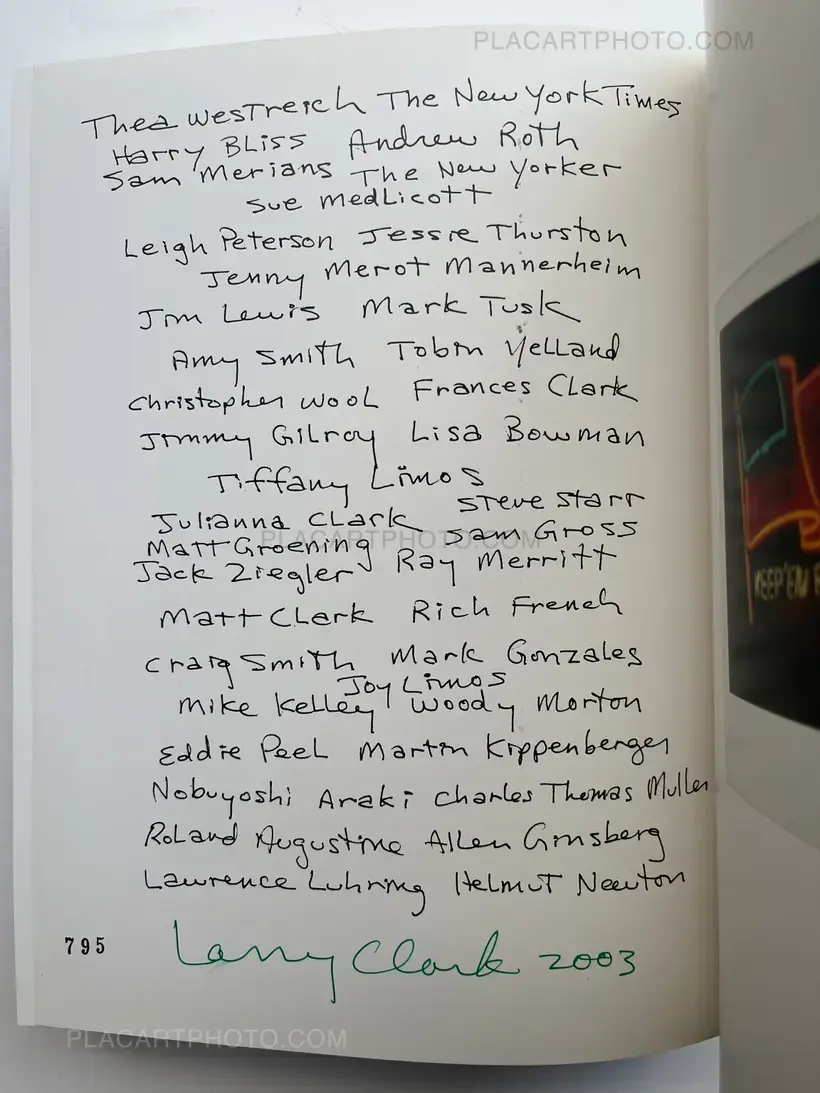 PLACARTPHOTO.COM
Thea Westreich The New York Times
Harry Bliss Andrew Roth
Sam Merians The New Yorker
Sue Medlicott
Leigh Peterson Jessie Thurston
Jenny Merot Mannerheim
Jim Lewis Mark Tusk
Amy Smith Tobin Yelland
Christopher Wool Frances Clark
Jimmy Gilroy Lisa Bowman
Tiffany Limos
Steve Starr
Julianna Clark Sam Gross
PLACARTPHOTO.COM
Matt Groening
Jack Ziegler Ray Merritt
Matt Clark Rich French
Craig Smith Mark Gonzales
Joy Limos
Mike Kelley Woody Morton
Eddie Peel Martin Kippenberger
Nobuyoshi Araki Charles Thomas Mullen
Roland Augustine Allen Ginsberg
Lawrence Luhring Helmut Newton
795
Larry Clark 2003
PLACARTPHOTO.COM
KEEP 'EM